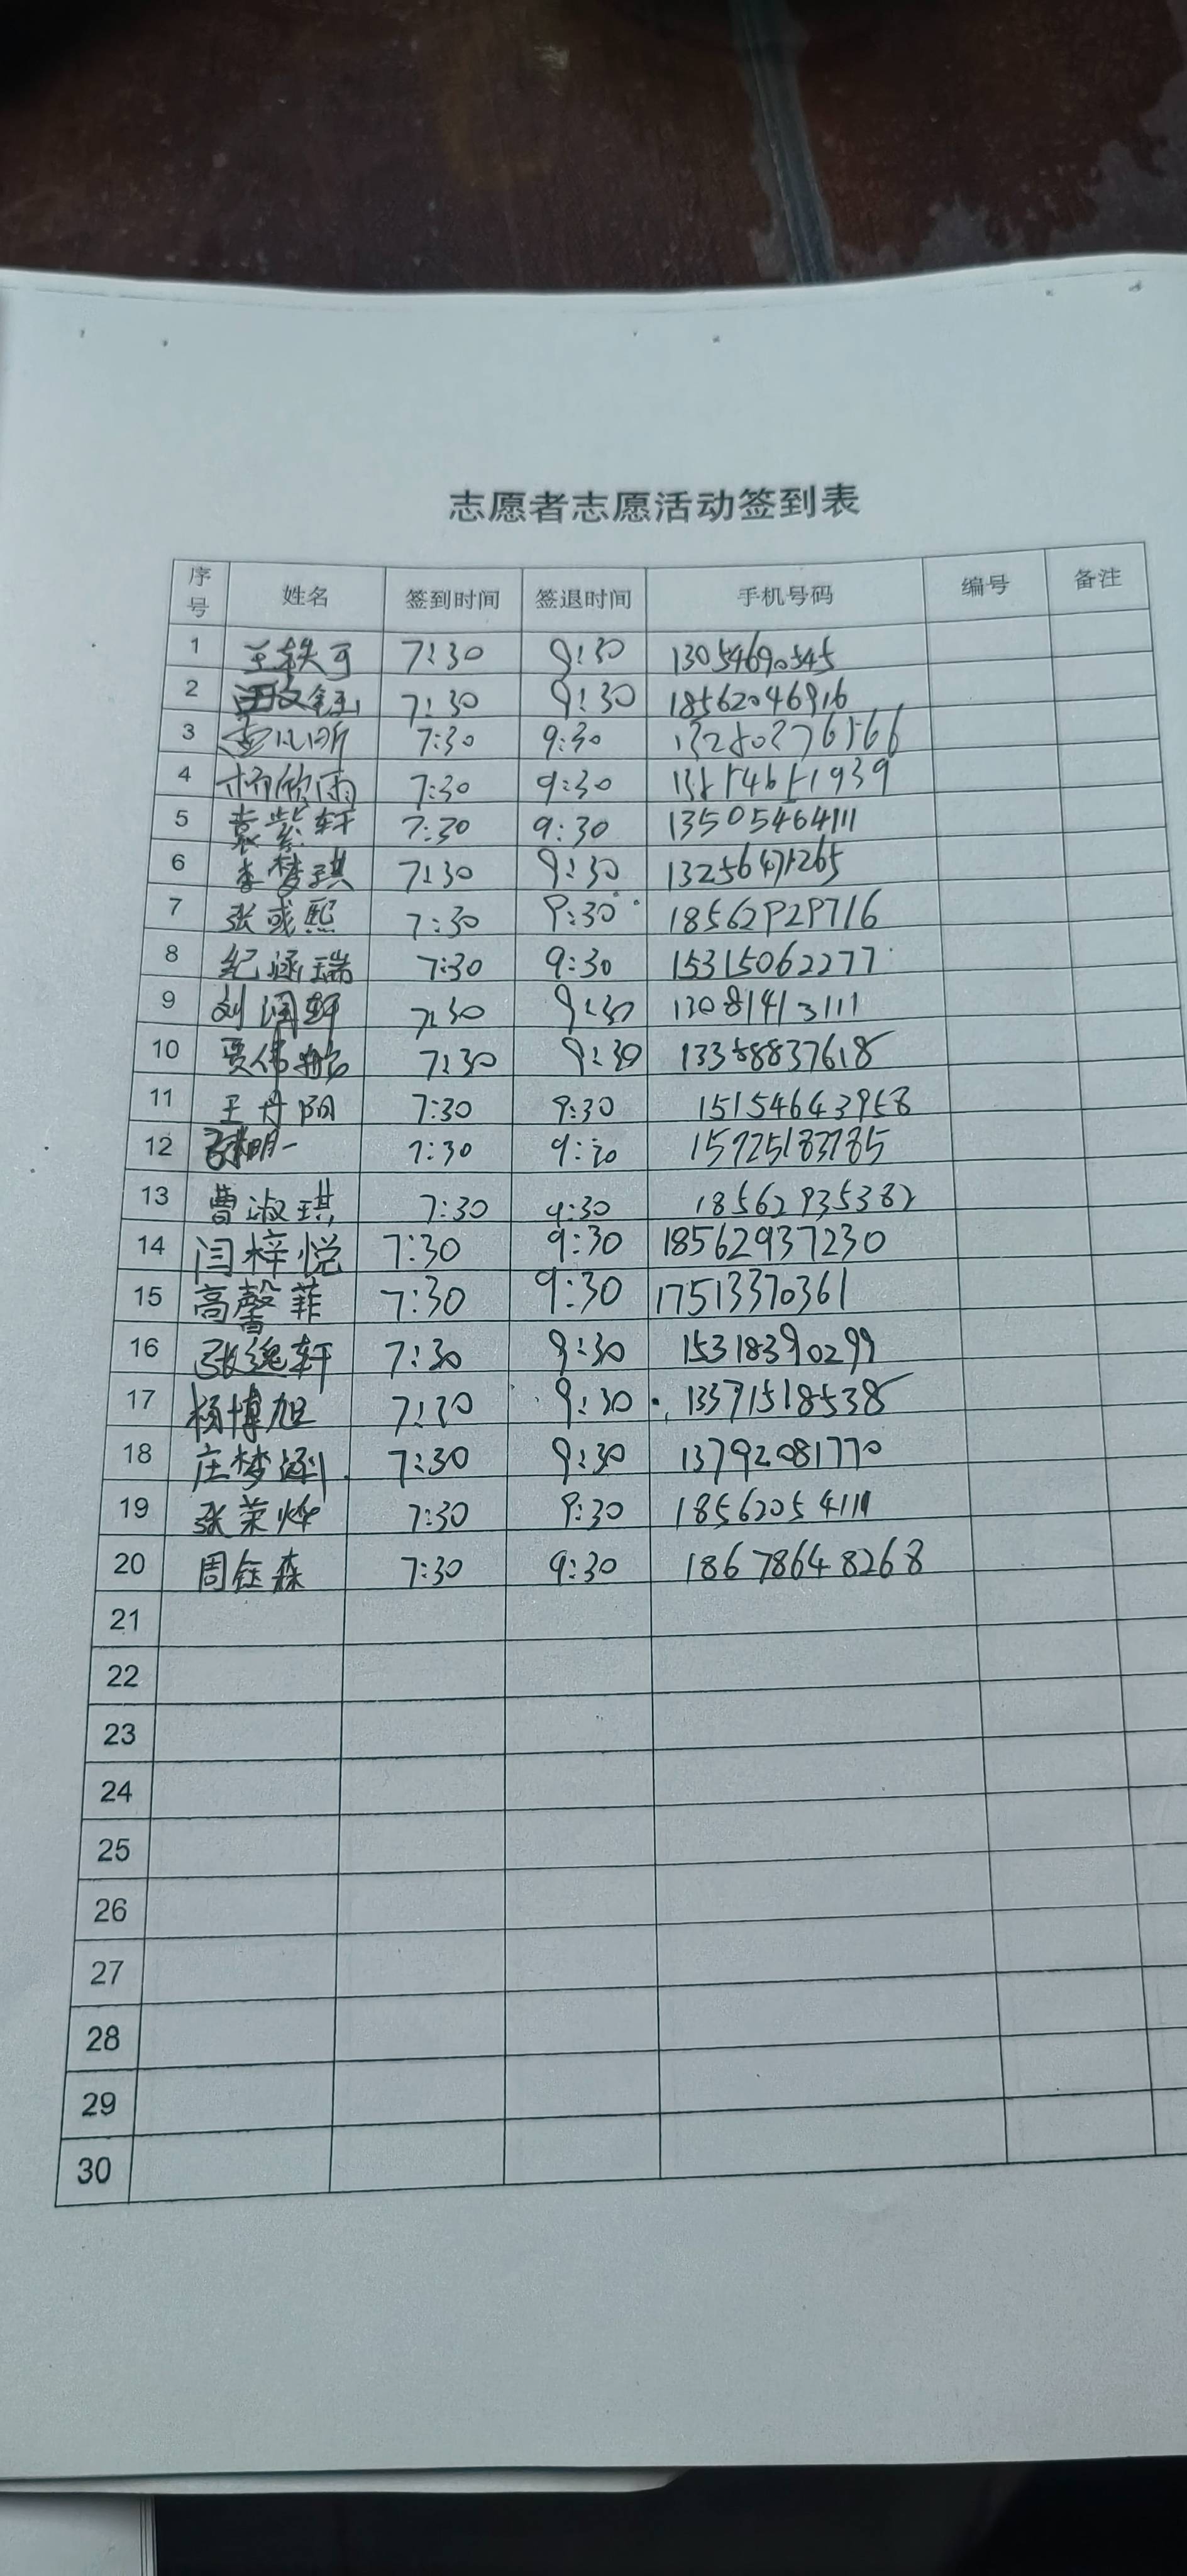 志愿者志愿活动签到表
序号 姓名 签到时间 签退时间 手机号码 编号 备注
1 王轶可 7:30 9:30 13054690545
2 7:30 9:30 18562046916
3 7:30 9:30
4 杨欣雨 7:30 9:30
5 袁紫轩 7:30 9:30 13505464111
6 李梦琪 7:30 9:30
7 张彧熙 7:30 9:30 18562929716
8 纪涵瑞 7:30 9:30 15315062277
9 刘润轩 7:30 9:30 13081413111
10 贾伟航 7:30 9:30
11 王丹阳 7:30 9:30
12 7:30 9:30
13 曹淑琪 7:30 9:30 18562935382
14 闫梓悦 7:30 9:30 18562937230
15 高馨菲 7:30 9:30 17513370361
16 张逸轩 7:30 9:30 15318390299
17 杨博旭 7:30 9:30
18 庄梦涵 7:30 9:30 13792081770
19 张荣烨 7:30 9:30 18562054111
20 周钰森 7:30 9:30 18678648268
21
22
23
24
25
26
27
28
29
30